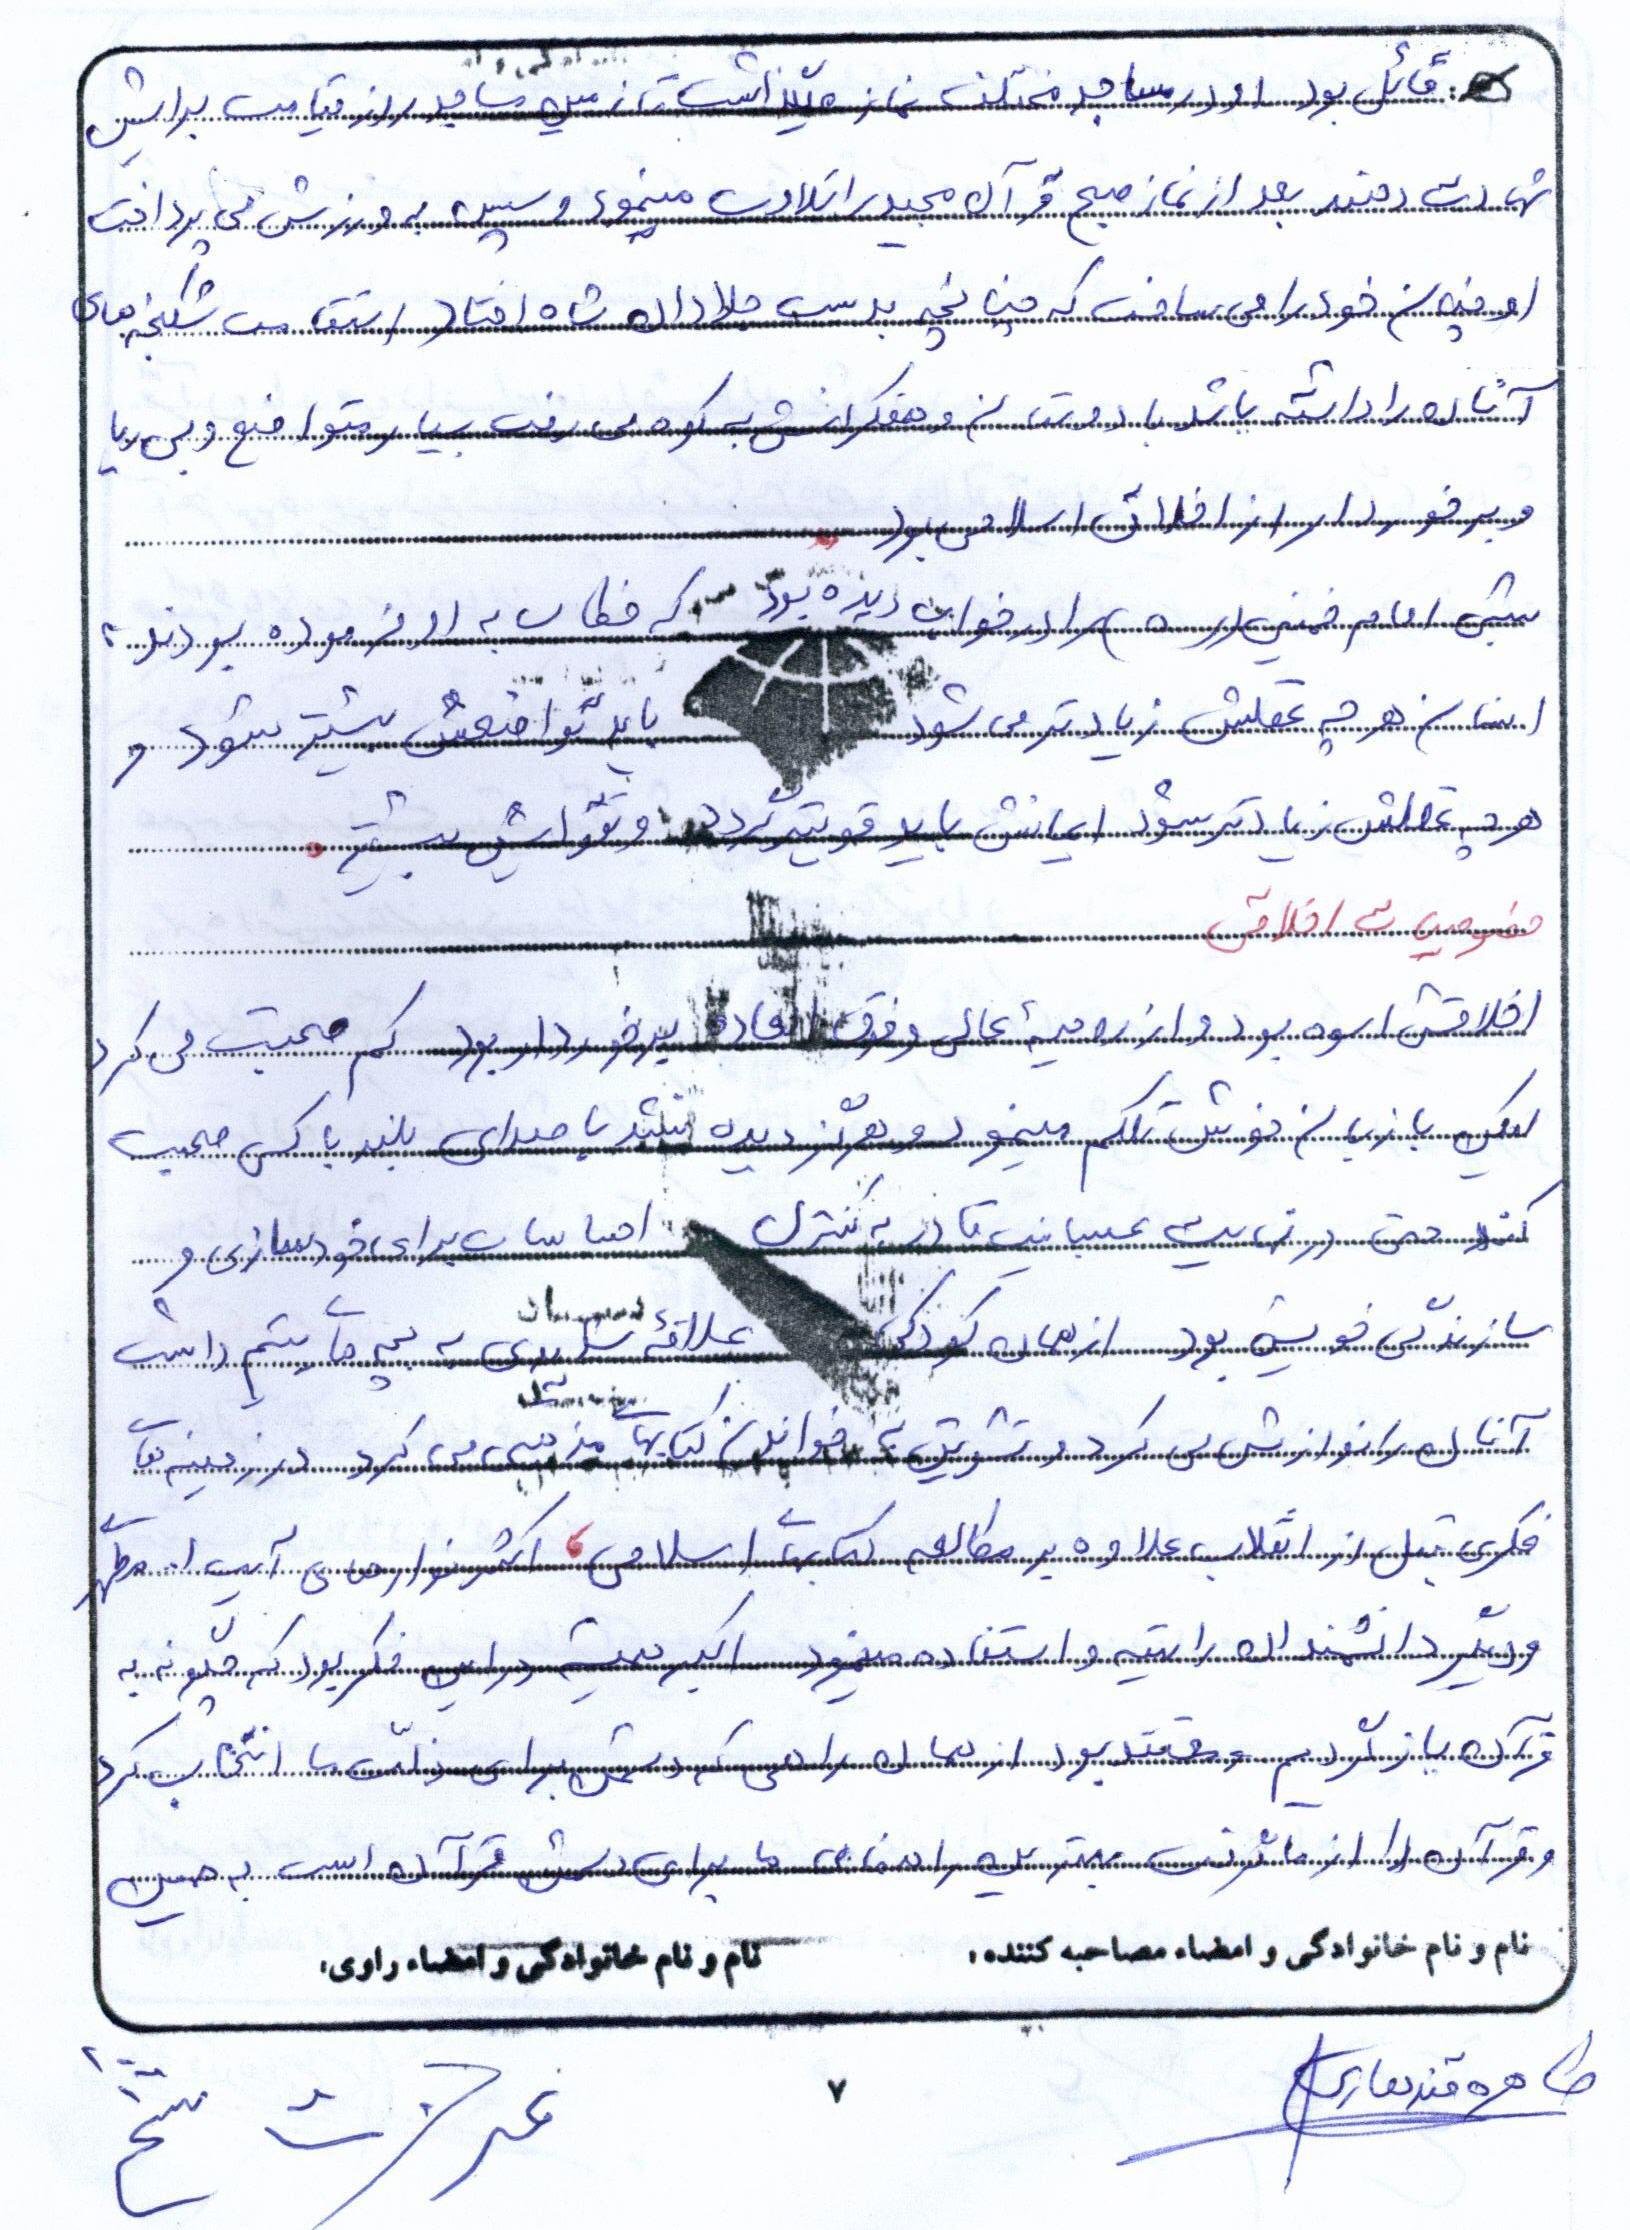 قائل بود. او در مساجد مختلف نماز میگذاشت تا زمین مساجد روز قیامت برایش
شهادت دهند بعد از نماز صبح قرآن مجید را تلاوت مینمود و سپس به ورزش می پرداخت
او چنان خود را می ساخت که چنانچه بدست جلادان شاه افتاد استقامت شکنجه های
آنان را داشته باشد با دوستان و همفکرانش به کوه می رفت بسیار متواضع و بی ریا
و برخوردار از اخلاق اسلامی بود
شبی امام خمینی (ره) را در خواب دیده بود که خطاب به او فرموده بودند:
انسان هر چه عقلش زیادتر می شود باید تواضعش بیشتر شود و
هر چه عقلش زیادتر شود ایمانش باید قویتر گردد و تقوایش بیشتر.
خصوصیات اخلاقی
اخلاقش اسوه بود و از روحیهٔ عالی و فوق العاده برخوردار بود کم صحبت می کرد
لیکن با زبان خوش تکلم مینمود و هرگز دیده نشد با صدای بلند با کسی صحبت
کند حتی در نهایت عصبانیت قادر به کنترل احساسات برای خودسازی و
سازندگی خویش بود از همان کودکی علاقهٔ به بچه های یتیم داشت
آنان را نوازش می کرد و تشویق به خواندن کتابهای مذهبی می کرد در زمینه های
فکری قبل از انقلاب علاوه بر مطالعه کتابهای اسلامی، اکثر نوارهای آیت ا.. مطهری
و دیگر دانشمندان را تهیه و استفاده مینمود اکبر همیشه در این فکر بود که چگونه به
قرآن باز گردیم معتقد بود از همان راهی که دشمن برای ذلّت ما انتخاب کرد
و قرآن را از ما گرفت بهترین راهنمای ما برای دشمن قرآن است به همین
نام و نام خانوادگی و امضاء مصاحبه کننده: نام و نام خانوادگی و امضاء راوی:
طاهره قندهاری
۷